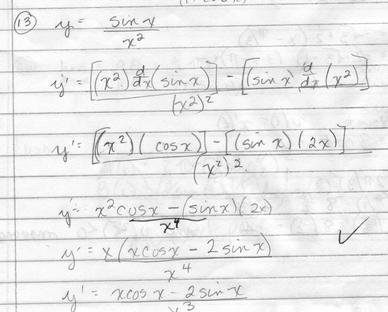 (13) y = sin x / x²
y' = [(x²) d/dx (sin x)] - [(sin x) d/dx (x²)] / (x²)²
y' = [(x²)(cos x)] - [(sin x)(2x)] / (x²)²
y' = x² cos x - (sin x)(2x) / x⁴
y' = x(x cos x - 2 sin x) / x⁴ ✓
y' = x cos x - 2 sin x / x³